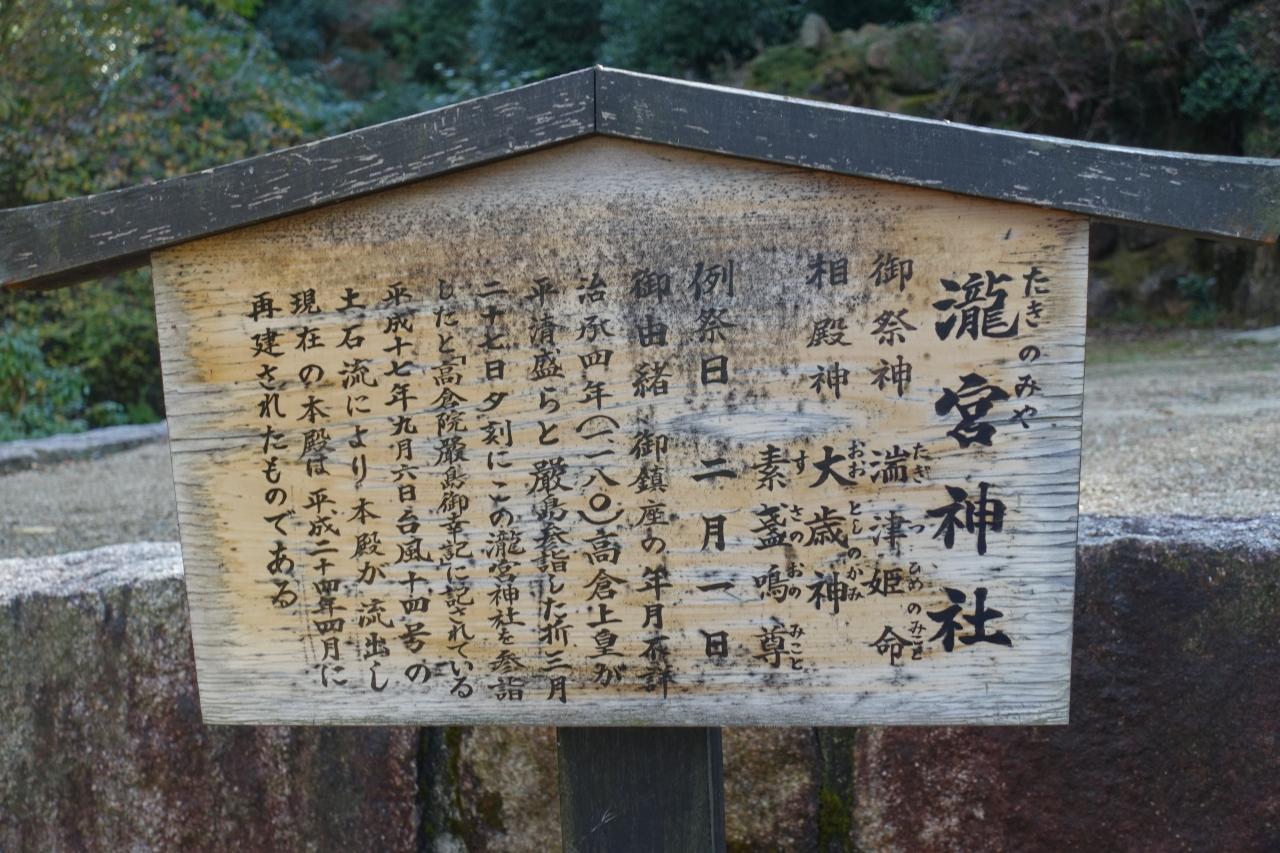 瀧宮神社
たきのみや
御祭神 湍津姫命
たぎつひめのみこと
相殿神 大歳神
おおとしのかみ
素盞鳴尊
すさのおのみこと
例祭日 二月一日
御由緒 御鎮座の年月不詳
治承四年(一一八〇)高倉上皇が
平清盛らと厳島参詣した折三月
二十七日夕刻にこの瀧宮神社を参詣
したと「高倉院厳島御幸記」に記されている
平成十七年九月六日台風十四号の
土石流により本殿が流出し
現在の本殿は平成二十四年四月に
再建されたものである